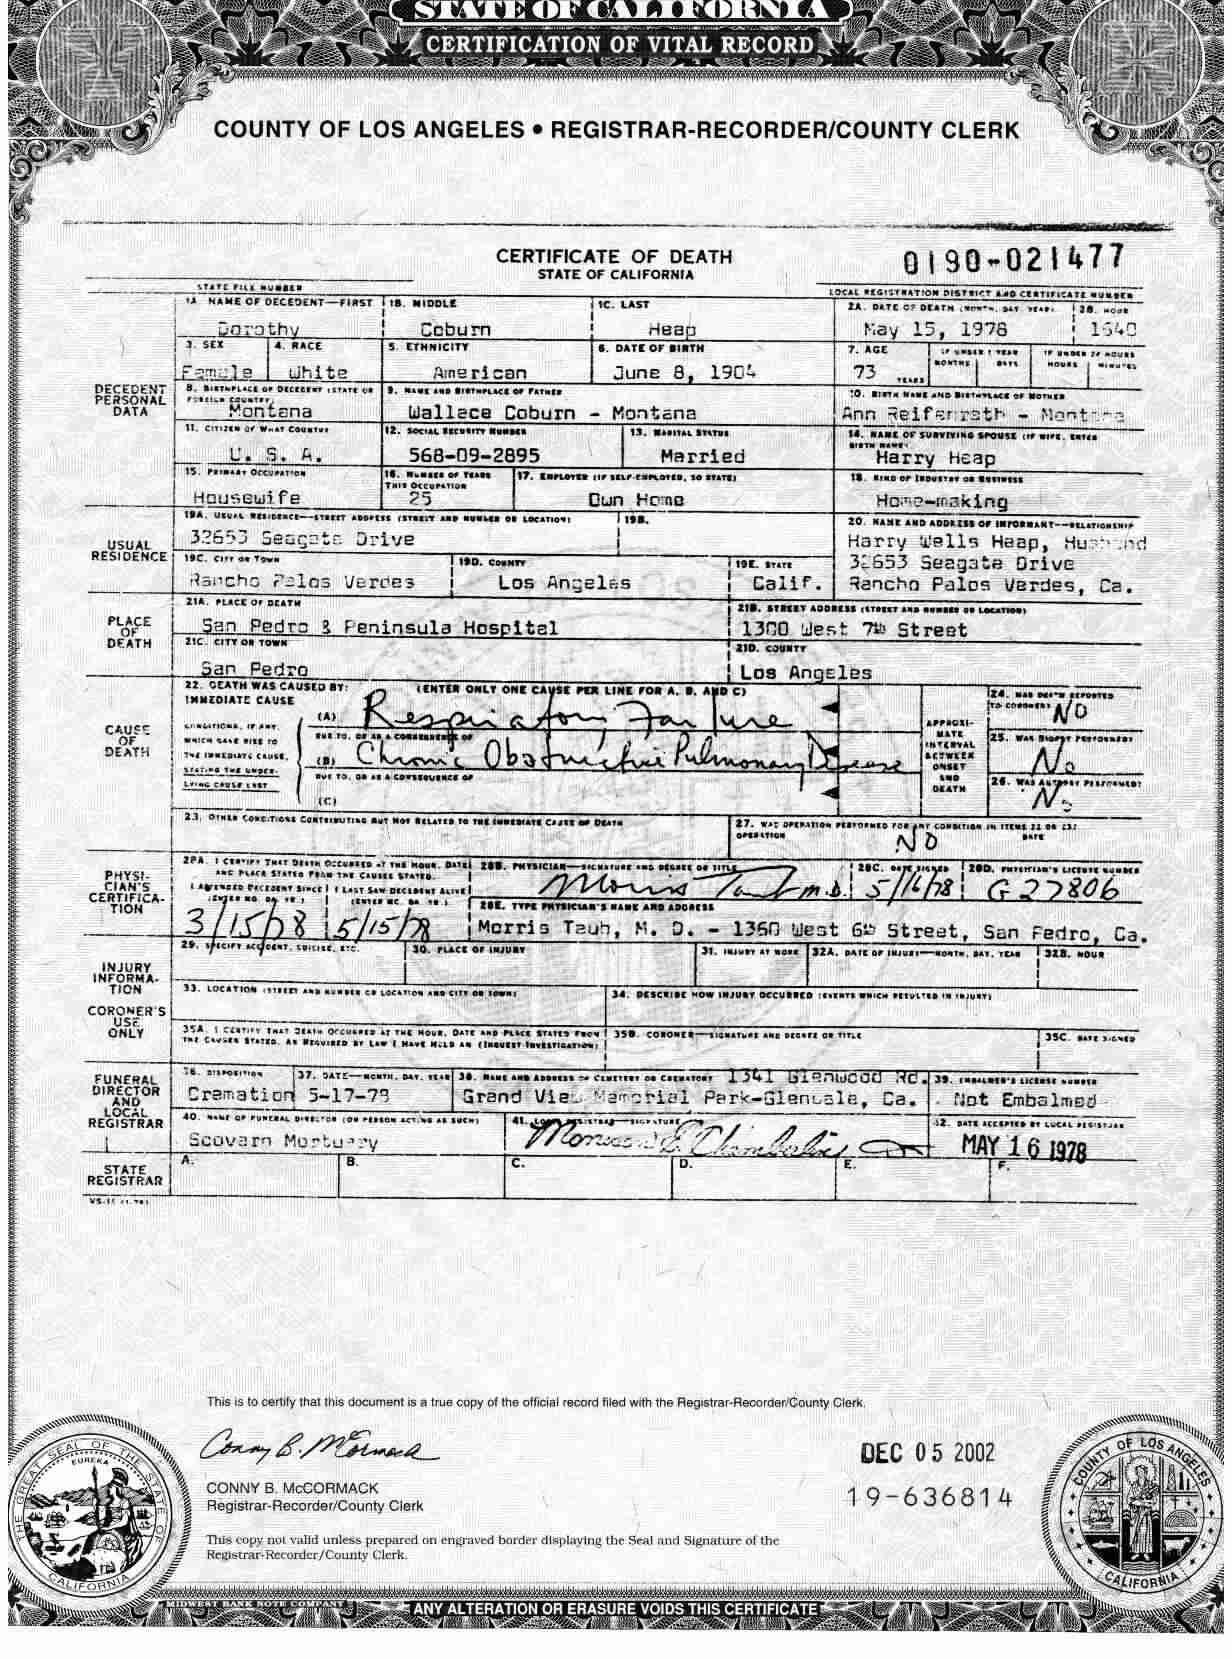 STATE OF CALIFORNIA
CERTIFICATION OF VITAL RECORD
COUNTY OF LOS ANGELES • REGISTRAR-RECORDER/COUNTY CLERK
CERTIFICATE OF DEATH 0190-021477
STATE OF CALIFORNIA
STATE FILE NUMBER LOCAL REGISTRATION DISTRICT AND CERTIFICATE NUMBER
1A. NAME OF DECEDENT—FIRST 1B. MIDDLE 1C. LAST 2A. DATE OF DEATH (MONTH, DAY, YEAR) 2B. HOUR
Dorothy Coburn Heap May 15, 1978 1640
3. SEX 4. RACE 5. ETHNICITY 6. DATE OF BIRTH 7. AGE IF UNDER 1 YEAR IF UNDER 24 HOURS
MONTHS DAYS HOURS MINUTES
Female White American June 8, 1904 73 YEARS
DECEDENT PERSONAL DATA
8. BIRTHPLACE OF DECEDENT (STATE OR FOREIGN COUNTRY) 9. NAME AND BIRTHPLACE OF FATHER 10. BIRTH NAME AND BIRTHPLACE OF MOTHER
Montana Wallace Coburn - Montana Ann Reifenrath - Montana
11. CITIZEN OF WHAT COUNTRY 12. SOCIAL SECURITY NUMBER 13. MARITAL STATUS 14. NAME OF SURVIVING SPOUSE (IF WIFE, ENTER BIRTH NAME)
U. S. A. 568-09-2895 Married Harry Heap
15. PRIMARY OCCUPATION 16. NUMBER OF YEARS THIS OCCUPATION 17. EMPLOYER (IF SELF-EMPLOYED, SO STATE) 18. KIND OF INDUSTRY OR BUSINESS
Housewife 25 Own Home Home-making
USUAL RESIDENCE
19A. USUAL RESIDENCE—STREET ADDRESS (STREET AND NUMBER OR LOCATION) 19B. 20. NAME AND ADDRESS OF INFORMANT—RELATIONSHIP
32653 Seagate Drive Harry Wells Heap, Husband
19C. CITY OR TOWN 19D. COUNTY 19E. STATE 32653 Seagate Drive
Rancho Palos Verdes Los Angeles Calif. Rancho Palos Verdes, Ca.
PLACE OF DEATH
21A. PLACE OF DEATH 21B. STREET ADDRESS (STREET AND NUMBER OR LOCATION)
San Pedro & Peninsula Hospital 1300 West 7th Street
21C. CITY OR TOWN 21D. COUNTY
San Pedro Los Angeles
CAUSE OF DEATH
22. DEATH WAS CAUSED BY: (ENTER ONLY ONE CAUSE PER LINE FOR A, B, AND C) 24. WAS DEATH REPORTED TO CORONER?
IMMEDIATE CAUSE
(A) Respiratory Failure NO
CONDITIONS, IF ANY, WHICH GAVE RISE TO THE IMMEDIATE CAUSE, STATING THE UNDERLYING CAUSE LAST
DUE TO, OR AS A CONSEQUENCE OF
(B) Chronic Obstructive Pulmonary Disease
DUE TO, OR AS A CONSEQUENCE OF
(C)
APPROXIMATE INTERVAL BETWEEN ONSET AND DEATH
25. WAS BIOPSY PERFORMED?
No
26. WAS AUTOPSY PERFORMED?
No
23. OTHER CONDITIONS CONTRIBUTING BUT NOT RELATED TO THE IMMEDIATE CAUSE OF DEATH 27. WAS OPERATION PERFORMED FOR ANY CONDITION IN ITEMS 22 OR 23?
OPERATION NO DATE
PHYSICIAN'S CERTIFICATION
28A. I CERTIFY THAT DEATH OCCURRED AT THE HOUR, DATE AND PLACE STATED FROM THE CAUSES STATED. 28B. PHYSICIAN—SIGNATURE AND DEGREE OR TITLE 28C. DATE SIGNED 28D. PHYSICIAN'S LICENSE NUMBER
Morris Taub M.D. 5/16/78 G27806
I ATTENDED DECEDENT SINCE (ENTER MO. DA. YR.) I LAST SAW DECEDENT ALIVE (ENTER MO. DA. YR.) 28E. TYPE PHYSICIAN'S NAME AND ADDRESS
3/15/78 5/15/78 Morris Taub, M. D. - 1360 West 6th Street, San Pedro, Ca.
INJURY INFORMATION
29. SPECIFY ACCIDENT, SUICIDE, ETC. 30. PLACE OF INJURY 31. INJURY AT WORK 32A. DATE OF INJURY—MONTH, DAY, YEAR 32B. HOUR
33. LOCATION (STREET AND NUMBER OR LOCATION AND CITY OR TOWN) 34. DESCRIBE HOW INJURY OCCURRED (EVENTS WHICH RESULTED IN INJURY)
CORONER'S USE ONLY
35A. I CERTIFY THAT DEATH OCCURRED AT THE HOUR, DATE AND PLACE STATED FROM THE CAUSES STATED, AS REQUIRED BY LAW I HAVE HELD AN (INQUEST-INVESTIGATION) 35B. CORONER—SIGNATURE AND DEGREE OR TITLE 35C. DATE SIGNED
FUNERAL DIRECTOR AND LOCAL REGISTRAR
36. DISPOSITION 37. DATE—MONTH, DAY, YEAR 38. NAME AND ADDRESS OF CEMETERY OR CREMATORY 1341 Glenwood Rd. 39. EMBALMER'S LICENSE NUMBER
Cremation 5-17-78 Grand View Memorial Park-Glendale, Ca. Not Embalmed
40. NAME OF FUNERAL DIRECTOR (OR PERSON ACTING AS SUCH) 41. LOCAL REGISTRAR—SIGNATURE 42. DATE ACCEPTED BY LOCAL REGISTRAR
Scovern Mortuary Chamberlin MAY 16 1978
STATE REGISTRAR
A. B. C. D. E. F.
This is to certify that this document is a true copy of the official record filed with the Registrar-Recorder/County Clerk.
Conny B. McCormack
DEC 05 2002
CONNY B. McCORMACK
Registrar-Recorder/County Clerk
19-636814
This copy not valid unless prepared on engraved border displaying the Seal and Signature of the
Registrar-Recorder/County Clerk.
THE GREAT SEAL OF THE STATE OF CALIFORNIA
EUREKA
COUNTY OF LOS ANGELES
CALIFORNIA
MIDWEST BANK NOTE COMPANY
ANY ALTERATION OR ERASURE VOIDS THIS CERTIFICATE